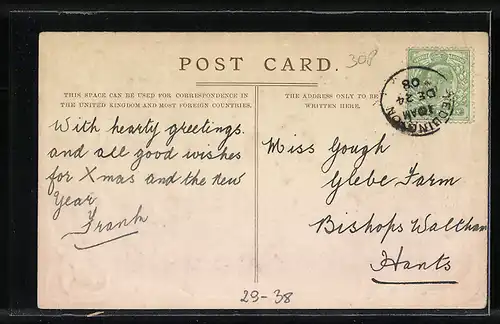 308
POST CARD.
THIS SPACE CAN BE USED FOR CORRESPONDENCE IN
THE UNITED KINGDOM AND MOST FOREIGN COUNTRIES.
THE ADDRESS ONLY TO BE
WRITTEN HERE.
10 AM
DE 24
08
With hearty greetings
and all good wishes
for Xmas and the New
Year
Frank
Miss Gough
Glebe Farm
Bishops Waltham
Hants
29-38